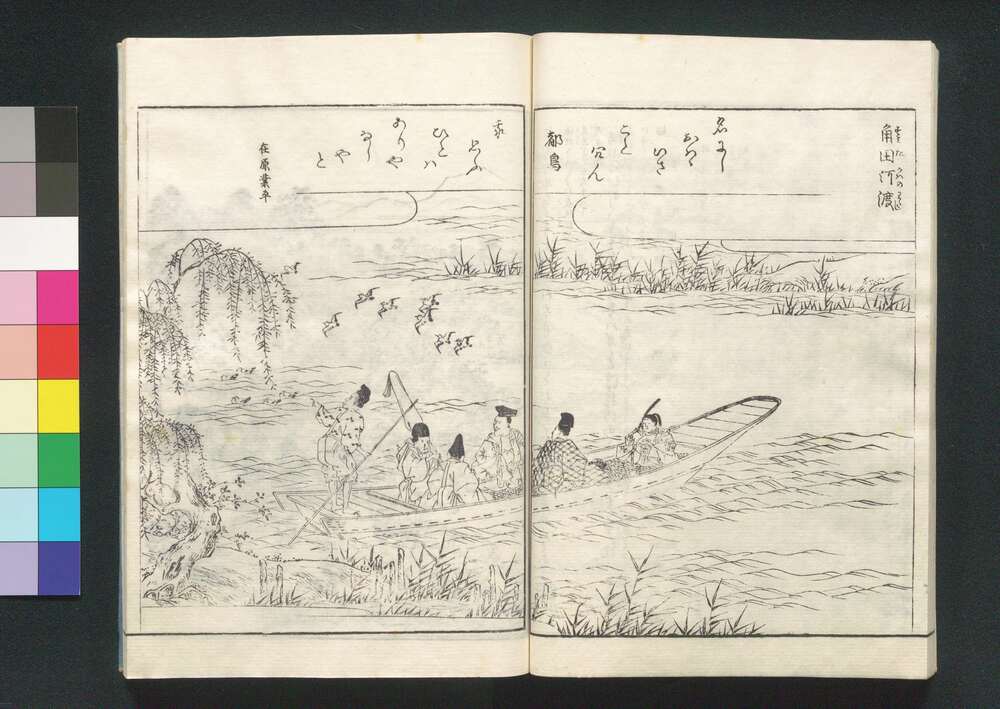 角田河渡
名にし
おはゝ
いさ
こと
問ん
都鳥
我
おもふ
ひとハ
ありや
なし
や
と
在原業平